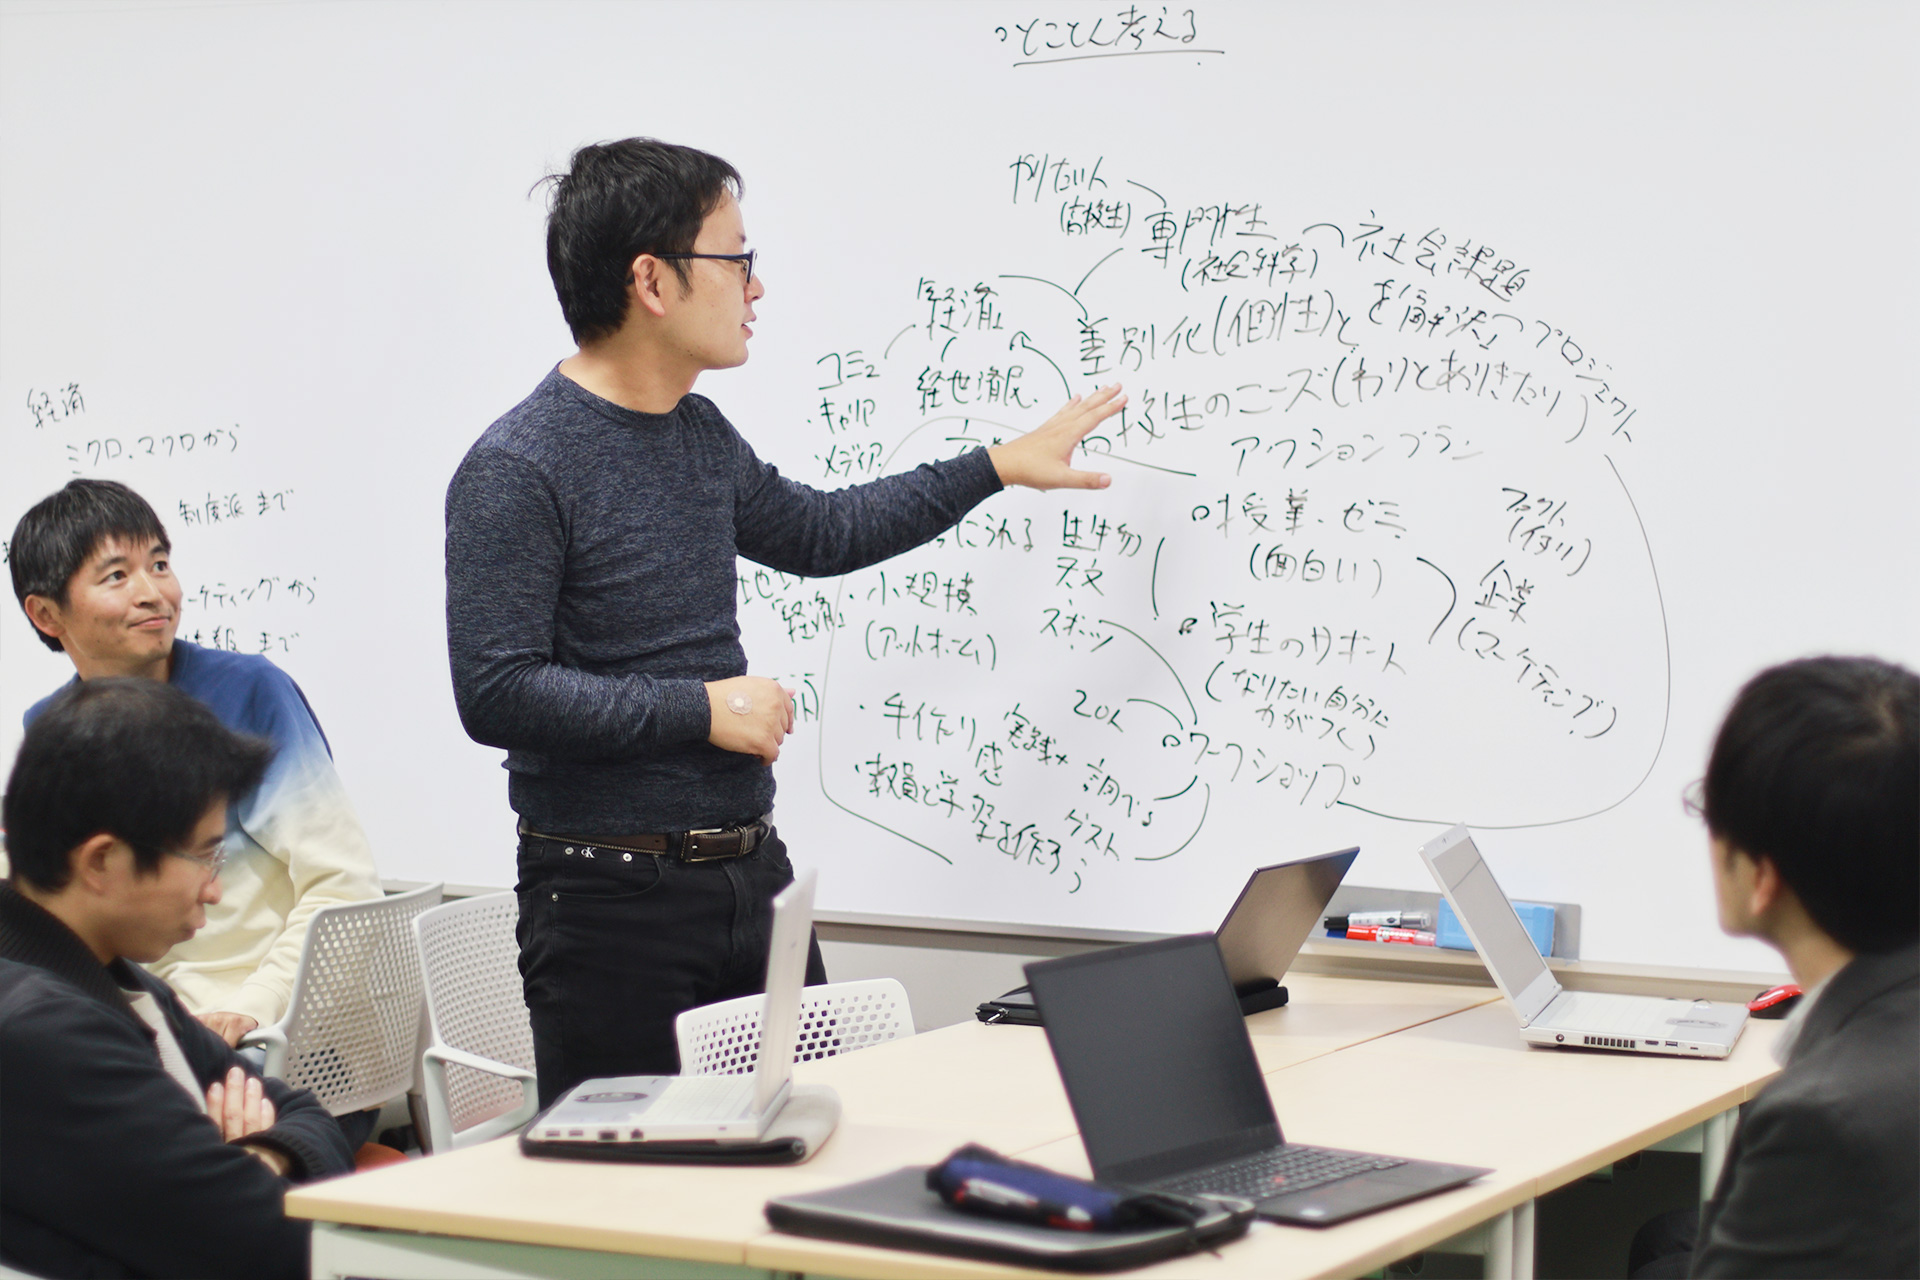 とことん考える
やりたい人
(高校生)
専門性
(社会科学)
社会課題
を解決
プロジェクト
経済
差別化(個性)と
コミュ
・キャリア
・メディア
経世済民
校生のニーズ(わりとありきたり)
アクションプラン
経済
ミクロ、マクロから
制度派まで
ーケティングから
まで
授業・ゼミ
(面白い)
企業
(マーケティング)
生物
天文
スポーツ
・小規模
(アットホーム)
「経済」
学生のサポート
(なりたい自分に
20人
ワークショップ
・手作り感
実践×
調べる
ゲスト
・教員と学
CK